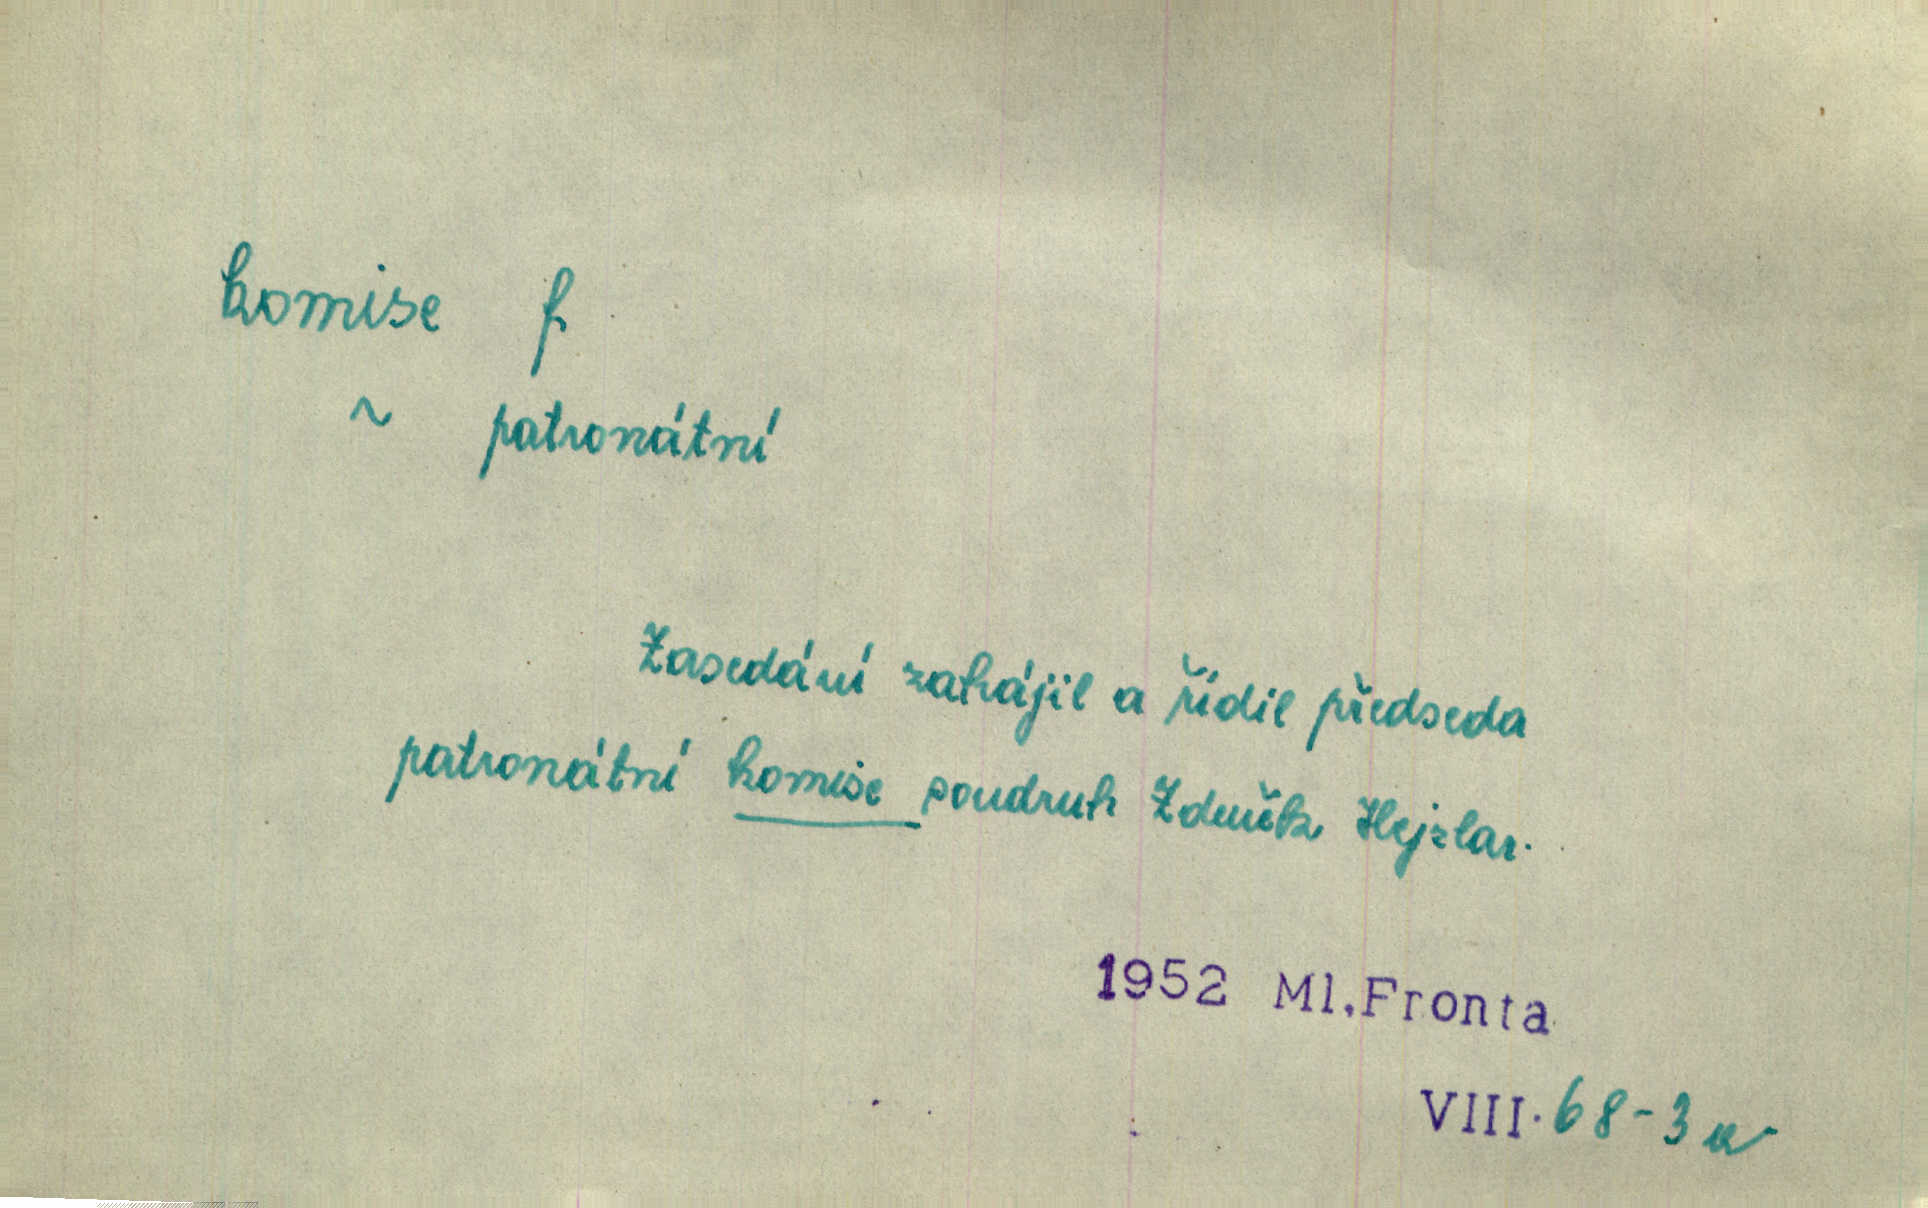 komise f
~ patronátní
Zasedání zahájil a řídil předseda
patronátní komise soudruh Zdeněk Hejzlar.
1952 Ml.Fronta
VIII. 68-3a